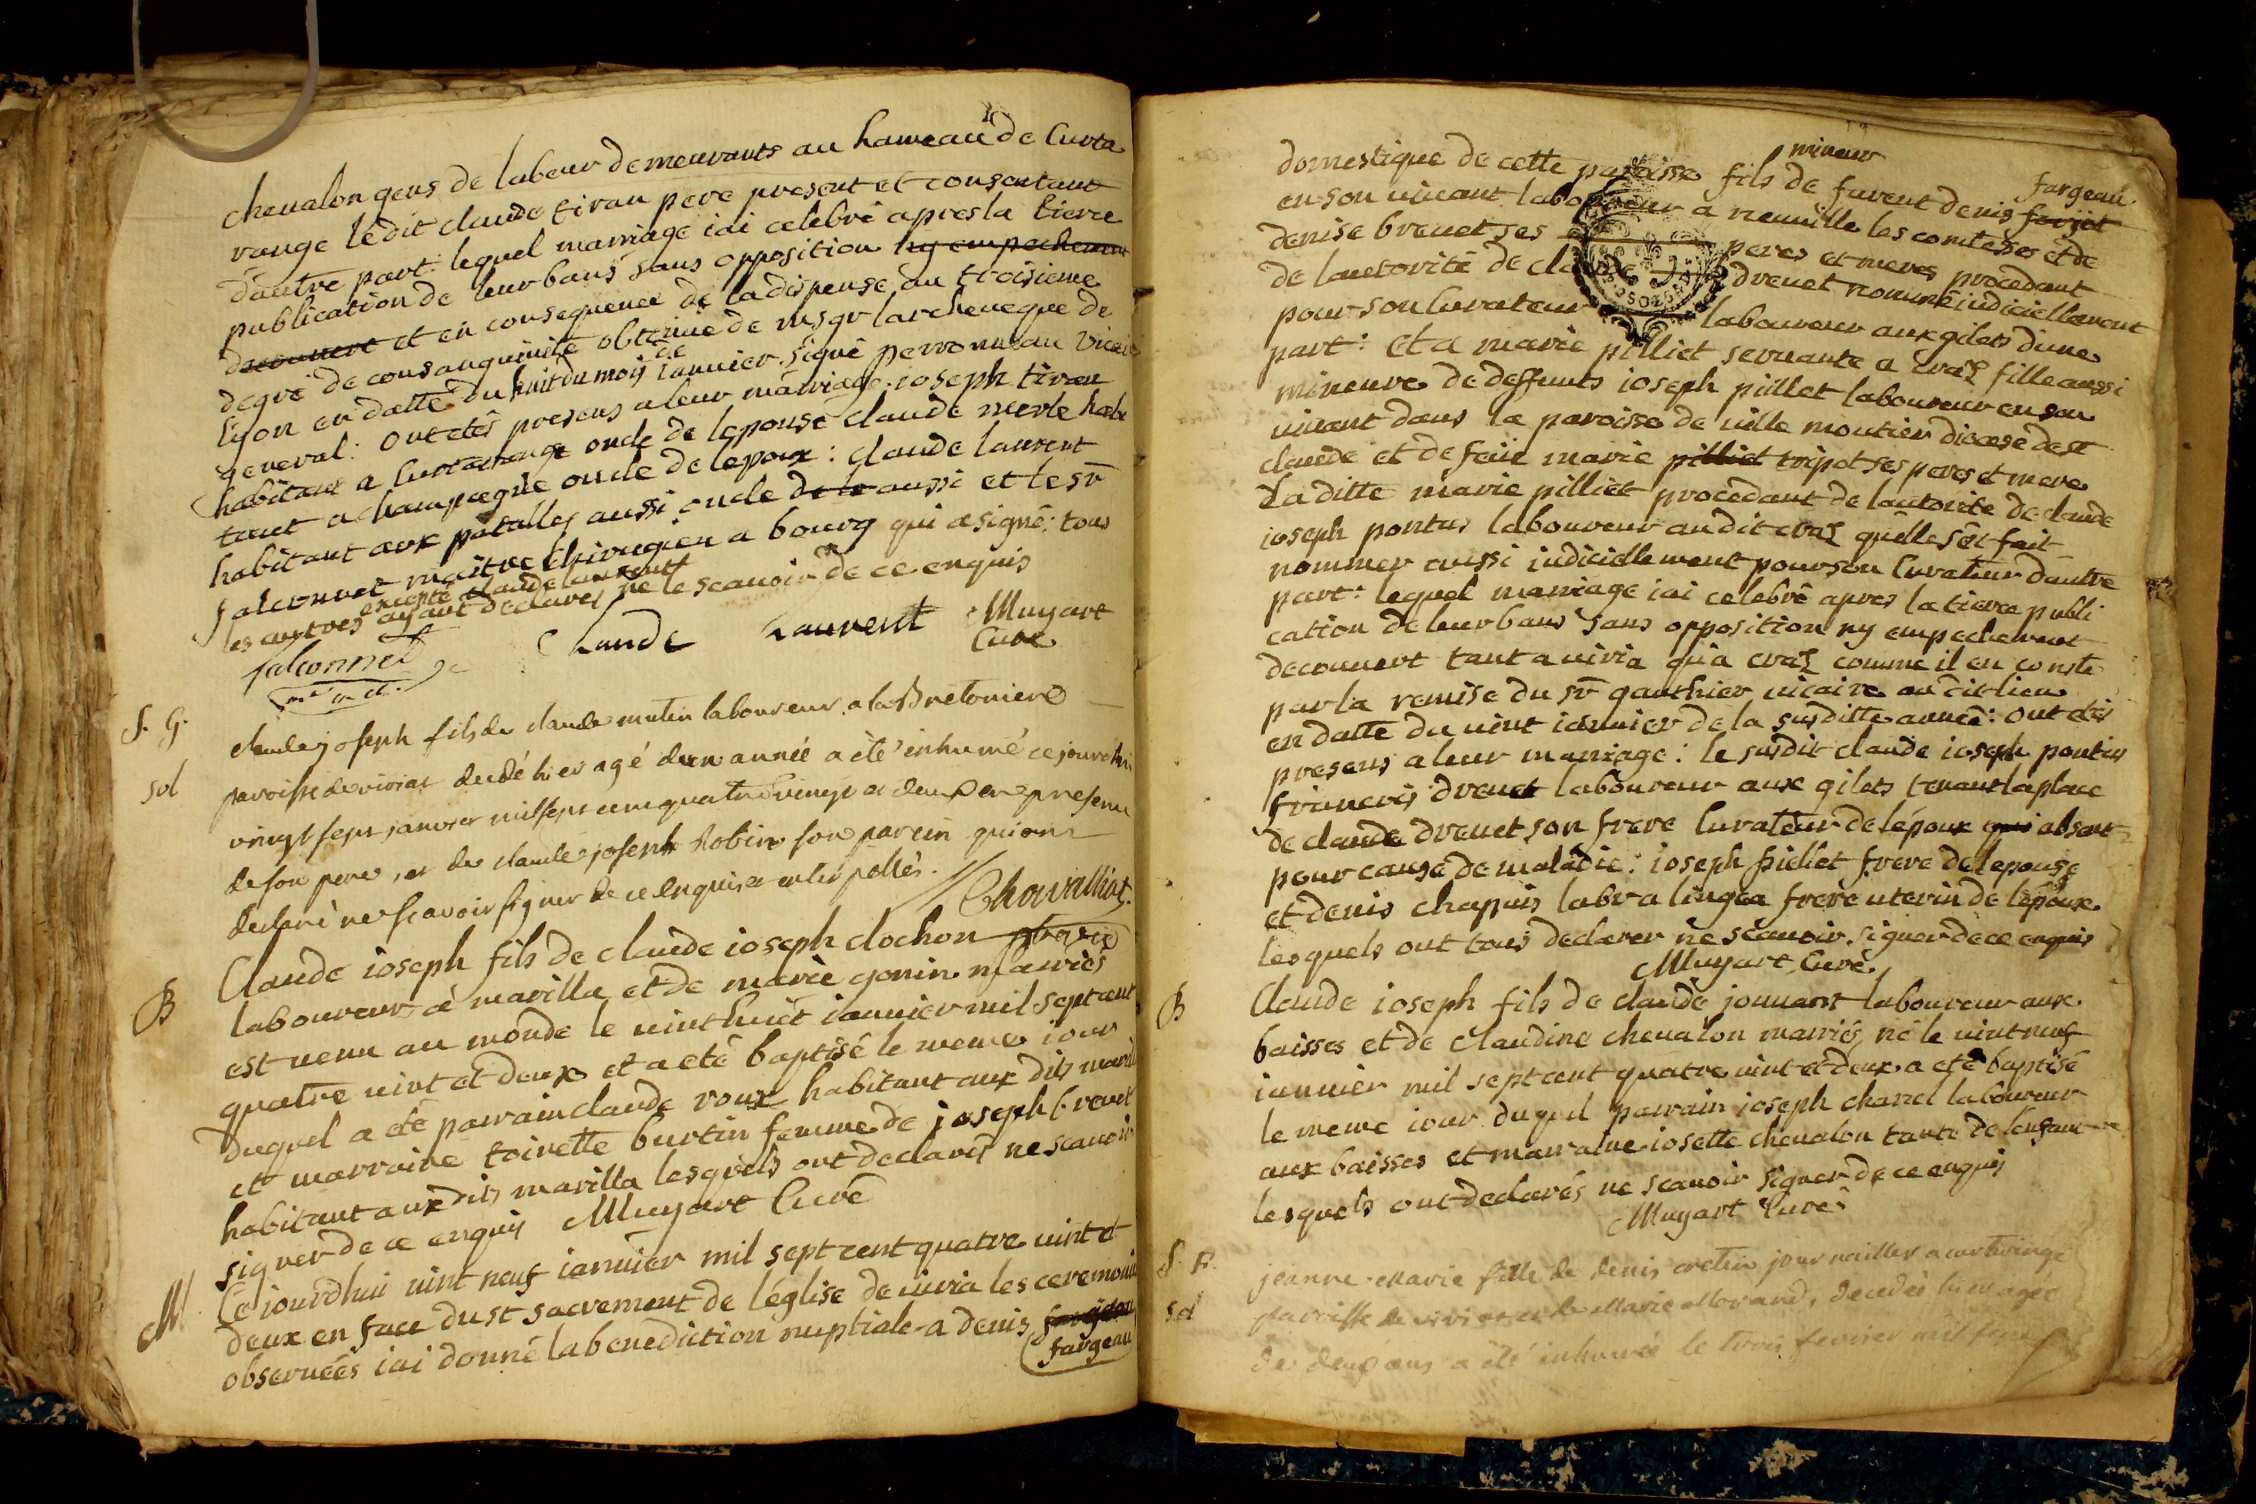 chevalon gens de labeur demeurants au hameau de Curta
range ledit claude tiran pere present et consentant
d'autre part lequel marriage iai celebré apres la tierce
publication de leur bans sans opposition ny empechement
decouvert et en consequence de la dispense du troisieme
degré de consanguinité obtenue de msgr larcheveque de
lyon en datte du huit du mois de ianvier signé perronneau vicaire
general: ont etés presens a leur marriage ioseph tiran
habitant a Curtarange oncle de lepouse claude merle habi
tant a champagne oncle de lepoux: claude laurent
habitant aux patalles aussi oncle aussi et le sr
falconnet maitre chirugien a bourg qui a signé: tous
excepté claude laurent
les autres ayant declarés ne le scavoir de ce enquis
falconnet Claude Laurent Muyart
Curé
S. G.
claude joseph fils de claude mutin laboureur a la Bretoniere
sol
paroisse de viriat decedé hier agé dun année a été inhumé ce jourdhui
vingt sept janvier mil sept cent quatre vingt et deux en presence
de son pere, et de claude joseph Robin son parein qui ont
declaré ne scavoir signer de ce enquis et interpellés.
Chovalliat
B
Claude ioseph fils de claude ioseph clochon
laboureur a marilla et de marie gonin marriés
est venu au monde le vint huit ianvier mil sept cent
quatre vint et deux et a eté baptisé le meme iour
duquel a eté parrain claude roux habitant aux dits marilla
et marraine toinette burtin femme de joseph brevet
habitant aux dits marilla lesquels ont declarés ne scavoir
signer de ce enquis Muyart Curé
M
Cejourdhui vint neuf ianvier mil sept cent quatre vint et
deux en face du st sacrement de léglise de viria les ceremonies
observées iai donné la benediction nuptiale a denis
fargeau
mineur
domestique de cette paroisse fils de furent denis forjot fargeau
en son vivant laboureur a neuville les comtesses et de
denise brevet ses peres et meres procedant
de lautorité de claude drevet nommé iudiciellement
pour son curateur laboureur aux gilets dune
part: Et a marie pilliet servante a cras fille aussi
mineure de deffunts ioseph pillet laboureur en son
vivant dans la paroisse de ville moutier diocese de st
claude et de feüe marie pilliet tripot ses peres et mere
Laditte marie pilliet procedant de lautorite de claude
ioseph pontus laboureur audit cras quelle sest fait
nommer aussi iudiciellement pour son curateur dautre
part: lequel marriage iai celebré apres la tierce publi
cation de leur bans sans opposition ny empechement
decouvert tant a viria qua cras comme il en conste
par la remise du sr gauthier vicaire au dit lieu
en datte du vint ianvier de la susditte année: ont étés
presens a leur marriage: le susdit claude ioseph pontus
francois drevet laboureur aux gilets tenant la place
de claude drevet son frere Curateur de lépoux qui absent
pour cause de maladie: ioseph pilliet frere de lepouse
et denis chapuis labr a lingea frere uterin de lépoux
lesquels ont tous declarer ne scavoir signer de ce enquis
Muyart Curé
B
Claude ioseph fils de claude jouvant laboureur aux
baisses et de claudine chevalon marriés né le vint neuf
ianvier mil sept cent quatre vint et deux a eté baptisé
le meme iour duquel parrain ioseph charel laboureur
aux baisses et marraine iosette chevalon tante de lenfant
lesquels ont declarés ne scavoir signer de ce enquis
Muyart Curé
jeanne Marie fille de denis cretin journaillier a curtaringe
sol
paroisse de viriat et de Marie Morand, decedée hier agée
de deux ans a été inhumée le trois fevrier mil sept